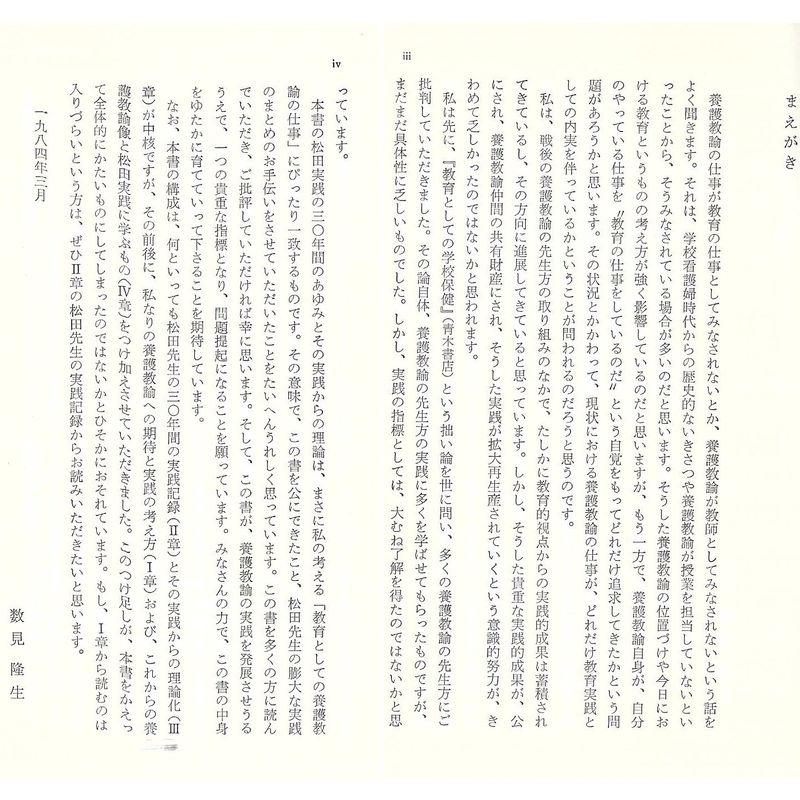 まえがき
養護教諭の仕事が教育の仕事としてみなされないとか、養護教諭が教師としてみなされないという話を
よく聞きます。それは、学校看護婦時代からの歴史的ないきさつや養護教諭が授業を担当していないとい
ったことから、そうみなされている場合が多いのだと思います。そうした養護教諭の位置づけや今日にお
ける教育というものの考え方が強く影響しているのだと思いますが、もう一方で、養護教諭自身が、自分
のやっている仕事を〝教育の仕事をしているのだ〟という自覚をもってどれだけ追求してきたかという問
題があろうかと思います。その状況とかかわって、現状における養護教諭の仕事が、どれだけ教育実践と
しての内実を伴っているかということが問われるのだろうと思うのです。
私は、戦後の養護教諭の先生方の取り組みのなかで、たしかに教育的視点からの実践的成果は蓄積され
てきているし、その方向に進展してきていると思っています。しかし、そうした貴重な実践的成果が、公
にされ、養護教諭仲間の共有財産にされ、そうした実践が拡大再生産されていくという意識的努力が、き
わめて乏しかったのではないかと思われます。
私は先に、『教育としての学校保健』(青木書店)という拙い論を世に問い、多くの養護教諭の先生方にご
批判していただきました。その論自体、養護教諭の先生方の実践に多くを学ばせてもらったものですが、
まだまだ具体性に乏しいものでした。しかし、実践の指標としては、大むね了解を得たのではないかと思
iii
っています。
本書の松田実践の三〇年間のあゆみとその実践からの理論は、まさに私の考える「教育としての養護教
諭の仕事」にぴったり一致するものです。その意味で、この書を公にできたこと、松田先生の膨大な実践
のまとめのお手伝いをさせていただいたことをたいへんうれしく思っています。この書を多くの方に読ん
でいただき、ご批評していただければ幸に思います。そして、この書が、養護教諭の実践を発展させうる
うえで、一つの貴重な指標となり、問題提起になることを願っています。みなさんの力で、この書の中身
をゆたかに育てていって下さることを期待しています。
なお、本書の構成は、何といっても松田先生の三〇年間の実践記録(Ⅱ章)とその実践からの理論化(Ⅲ
章)が中核ですが、その前後に、私なりの養護教諭への期待と実践の考え方(Ⅰ章)および、これからの養
護教諭像と松田実践に学ぶもの(Ⅳ章)をつけ加えさせていただきました。このつけ足しが、本書をかえっ
て全体的にかたいものにしてしまったのではないかとひそかにおそれています。もし、Ⅰ章から読むのは
入りづらいという方は、ぜひⅡ章の松田先生の実践記録からお読みいただきたいと思います。
一九八四年三月
数見隆生
iv